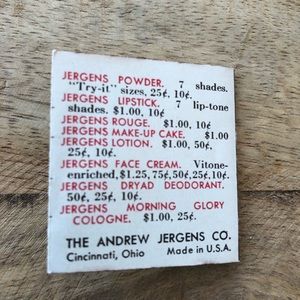 JERGENS POWDER. 7 shades.
"Try-it" sizes, 25¢, 10¢.
JERGENS LIPSTICK. 7 lip-tone
shades. $1.00, 10¢
JERGENS ROUGE. $1.00, 10¢
JERGENS MAKE-UP CAKE. $1.00
JERGENS LOTION. $1.00, 50¢,
25¢, 10¢.
JERGENS FACE CREAM. Vitone-
enriched, $1.25, 75¢, 50¢, 25¢, 10¢.
JERGENS DRYAD DEODORANT.
50¢, 25¢, 10¢.
JERGENS MORNING GLORY
COLOGNE. $1.00, 25¢.
THE ANDREW JERGENS CO.
Cincinnati, Ohio Made in U.S.A.